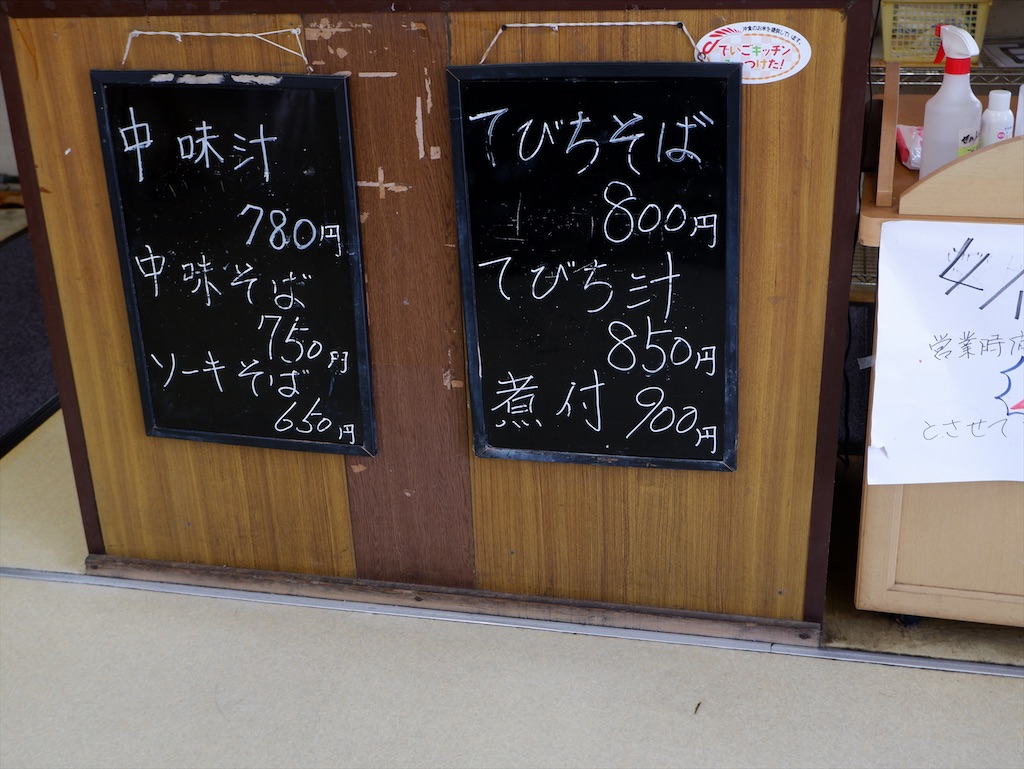 中味汁
780円
中味そば
750円
ソーキそば
650円
てびちそば
800円
てびち汁
850円
煮付 900円
でいごキッチン
つけた!
営業時
とさせて